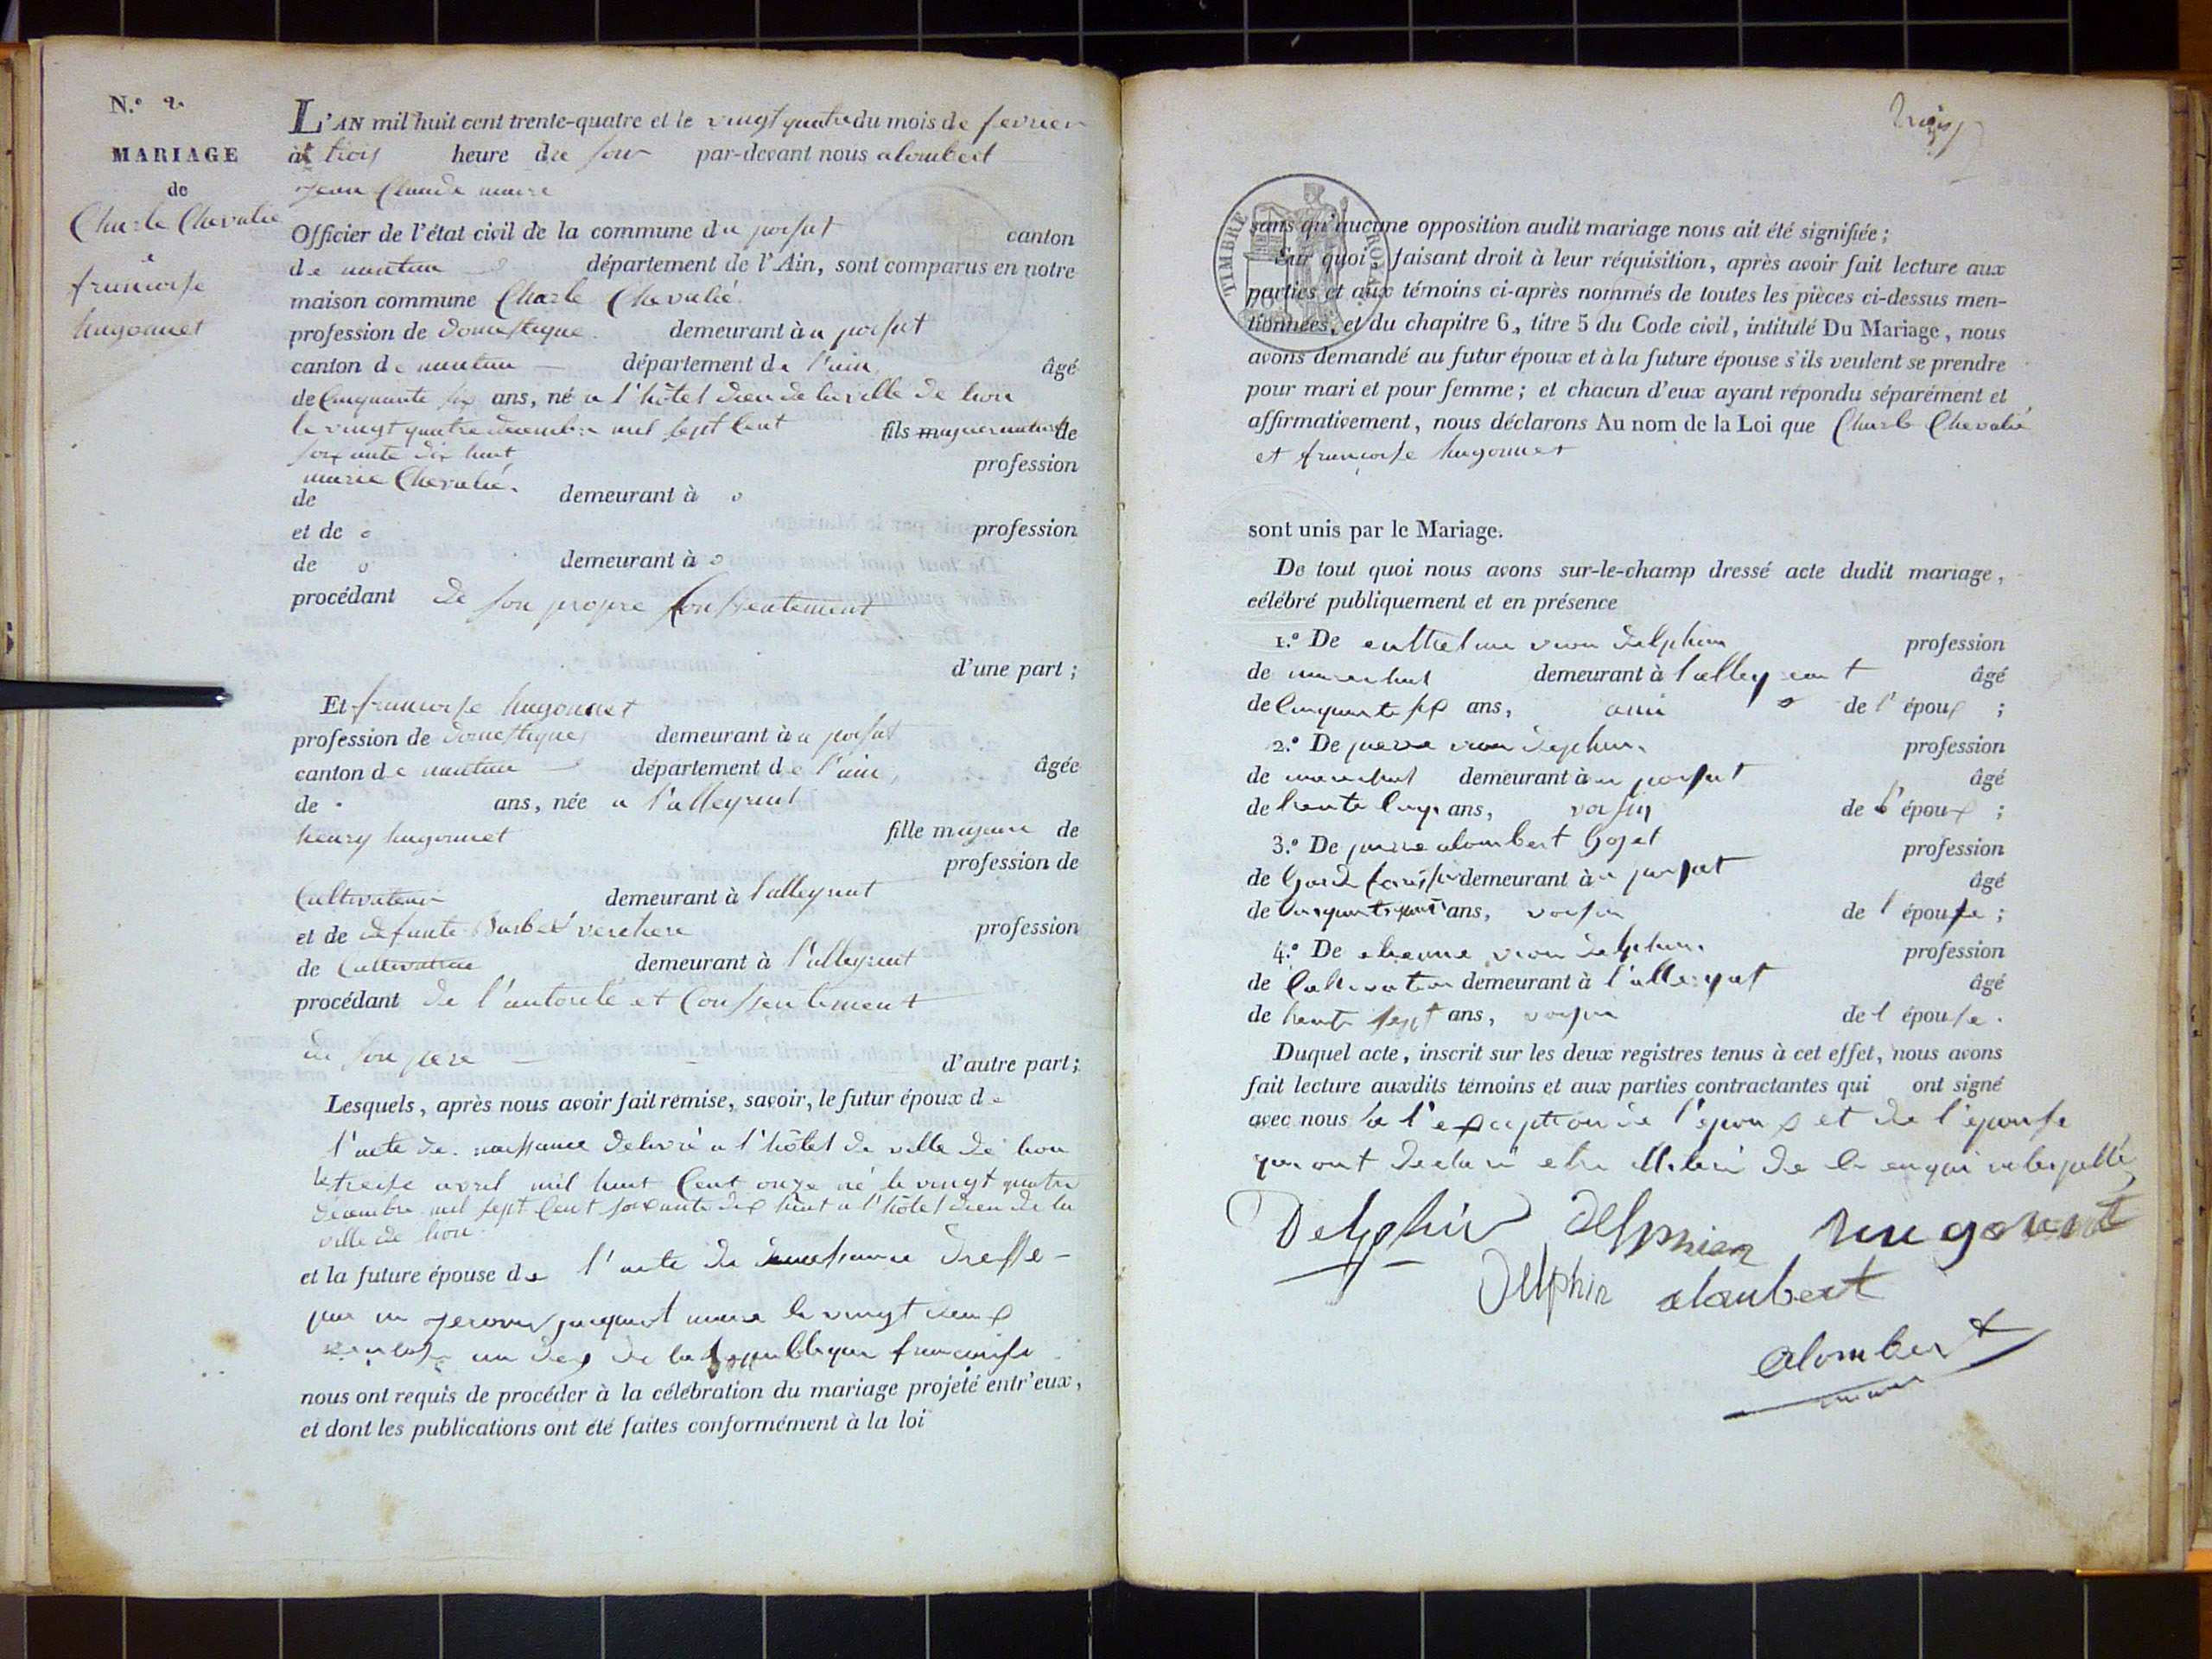 N.º 2.
MARIAGE
de
Charle Chevalié
et
françoise
hugonnet
L'AN mil huit cent trente-quatre et le vingt quatre du mois de fevrier
à trois heure du soir par-devant nous alombert
jean Claude maire
Officier de l'état civil de la commune du poisat canton
de nantua département de l'Ain, sont comparus en notre
maison commune Charle Chevalié.
profession de domestique. demeurant à u poisat
canton de nantua département de l'ain, âgé
de Cinquante six ans, né a l'hôtel dieu de la ville de lion
le vingt quatre decembre mil sept Cent fils majeur naturel de
soixante dix huit profession
marie Chevalié.
de demeurant à o
et de o profession
de o demeurant à o
procédant de son propre Consentement
d'une part ;
Et françoise hugonnet
profession de domestique demeurant à u poisat
canton de nantua département de l'ain, âgée
de ans, née a l'alleyriat
henry hugonnet fille majeure de
profession de
Cultivateur demeurant à l'alleyriat
et de defunte Barbet verchere profession
de Cultivatrice demeurant à l'alleyriat
procédant de l'autorité et Conssentement
de son pere d'autre part;
Lesquels, après nous avoir fait remise, savoir, le futur époux de
l'acte de naissance delivré a l'hôtel de ville de lion
le treise avril mil huit Cent onze né le vingt quatre
decembre mil sept Cent soixante dix huit a l'hôtel dieu de la
ville de lion.
et la future épouse de l'acte de naissance dressé
par le maire le vingt deux
an dix de la republique française
nous ont requis de procéder à la célébration du mariage projeté entr'eux,
et dont les publications ont été faites conformément à la loi
TIMBRE ROYAL
sans qu'aucune opposition audit mariage nous ait été signifiée ;
Sur quoi, faisant droit à leur réquisition, après avoir fait lecture aux
parties et aux témoins ci-après nommés de toutes les pièces ci-dessus men-
tionnées, et du chapitre 6, titre 5 du Code civil, intitulé Du Mariage, nous
avons demandé au futur époux et à la future épouse s'ils veulent se prendre
pour mari et pour femme ; et chacun d'eux ayant répondu séparément et
affirmativement, nous déclarons Au nom de la Loi que Charle Chevalié
et françoise hugonnet
sont unis par le Mariage.
De tout quoi nous avons sur-le-champ dressé acte dudit mariage,
célébré publiquement et en présence
1.º De vion delphin profession
de marechal demeurant à l'alleyriat âgé
de Cinquante six ans, ami de l'époux ;
2.º De pierre vion delphin. profession
de marechal demeurant à u poisat âgé
de trente Cinq ans, voisin de l'époux ;
3.º De pierre alombert Goget profession
de Garde forestier demeurant à u poisat âgé
de ans, voisin de l'épouse ;
4.º De etienne vion delphin. profession
de Cultivateur demeurant à l'alleyriat âgé
de trente sept ans, voisin de l'épouse.
Duquel acte, inscrit sur les deux registres tenus à cet effet, nous avons
fait lecture auxdits témoins et aux parties contractantes qui ont signé
avec nous a l'exception de l'époux et de l'épouse
qui ont declaré etre illiteré de ce enquis
Delphin delphien hugonnet
Delphin alonbert
Alombert
maire